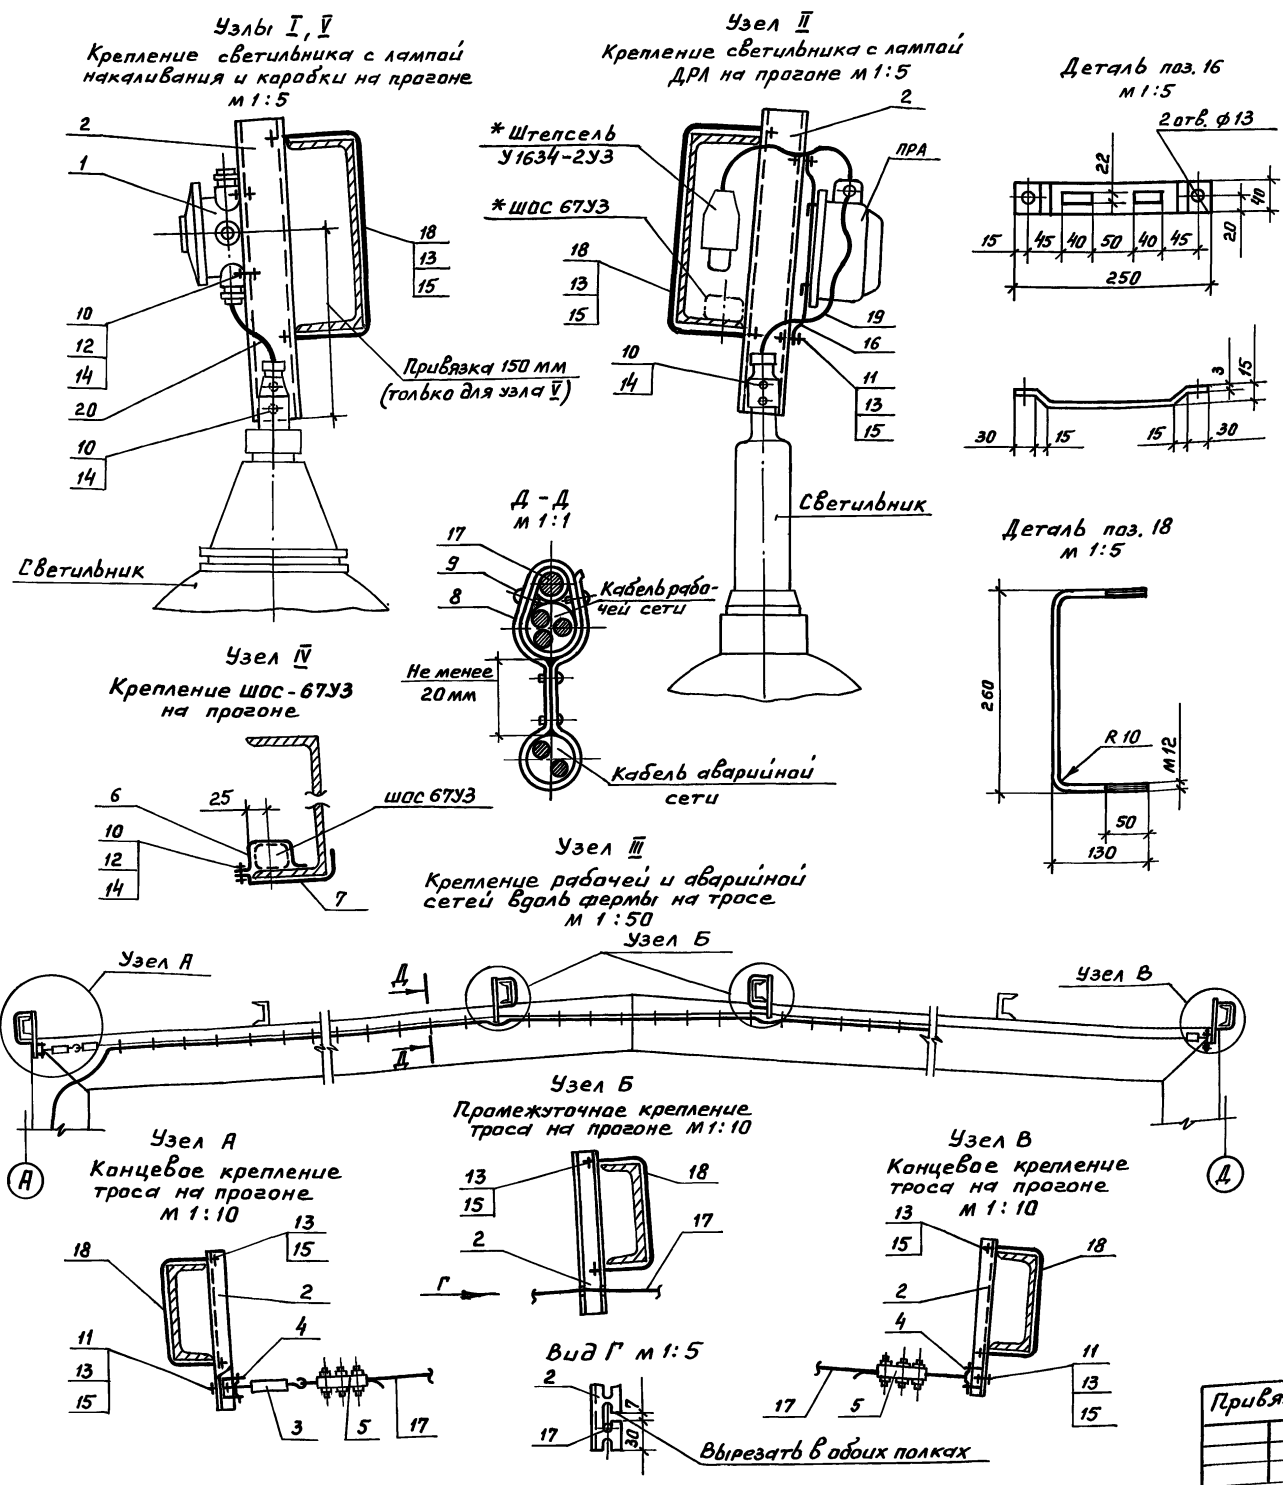 Узлы I, V
Крепление светильника с лампой
накаливания и коробки на прогоне
м 1:5
2
1
10
12
14
20
10
14
18
13
15
Привязка 150 мм
(только для узла V)
Светильник
Узел II
Крепление светильника с лампой
ДРЛ на прогоне м 1:5
2
* Штепсель
У1634-2У3
ПРА
* ШОС 67У3
18
13
15
10
14
19
16
11
13
15
Светильник
Деталь поз. 16
м 1:5
2 отв. ϕ13
22
40
20
15
45
40
50
40
45
250
3
15
30
15
15
30
Д - Д
м 1:1
17
9
8
Кабель рабо-
чей сети
Не менее
20 мм
Кабель аварийной
сети
Деталь поз. 18
м 1:5
260
R 10
М12
50
130
Узел IV
Крепление ШОС-67У3
на прогоне
25
ШОС 67У3
6
10
12
14
7
Узел III
Крепление рабочей и аварийной
сетей вдоль фермы на тросе
м 1:50
Узел А
Узел Б
Узел В
Д
Д
А
Д
Узел А
Концевое крепление
троса на прогоне
м 1:10
13
15
18
2
4
11
13
15
3
5
17
Узел Б
Промежуточное крепление
троса на прогоне м 1:10
13
15
18
2
17
Г
Вид Г м 1:5
2
7
17
30
Вырезать в обоих полках
Узел В
Концевое крепление
троса на прогоне
м 1:10
13
15
18
2
4
11
13
15
17
5
Привя